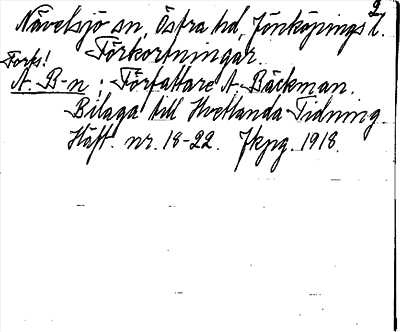 2
Nävelsjö sn, Östra hd, Jönköpings l.
Förkortningar.
Forts!
A. B-n : Författare A. Bäckman.
Bilaga till Hvetlanda Tidning.
Häft. nr. 18-22. Jkpg. 1918.